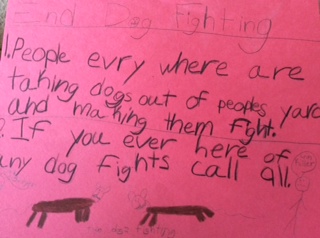 End Dog Fighting
1.People evry where are
taking dogs out of peoples yard
and making them fight.
2. If you ever here of
any dog fights call 911.